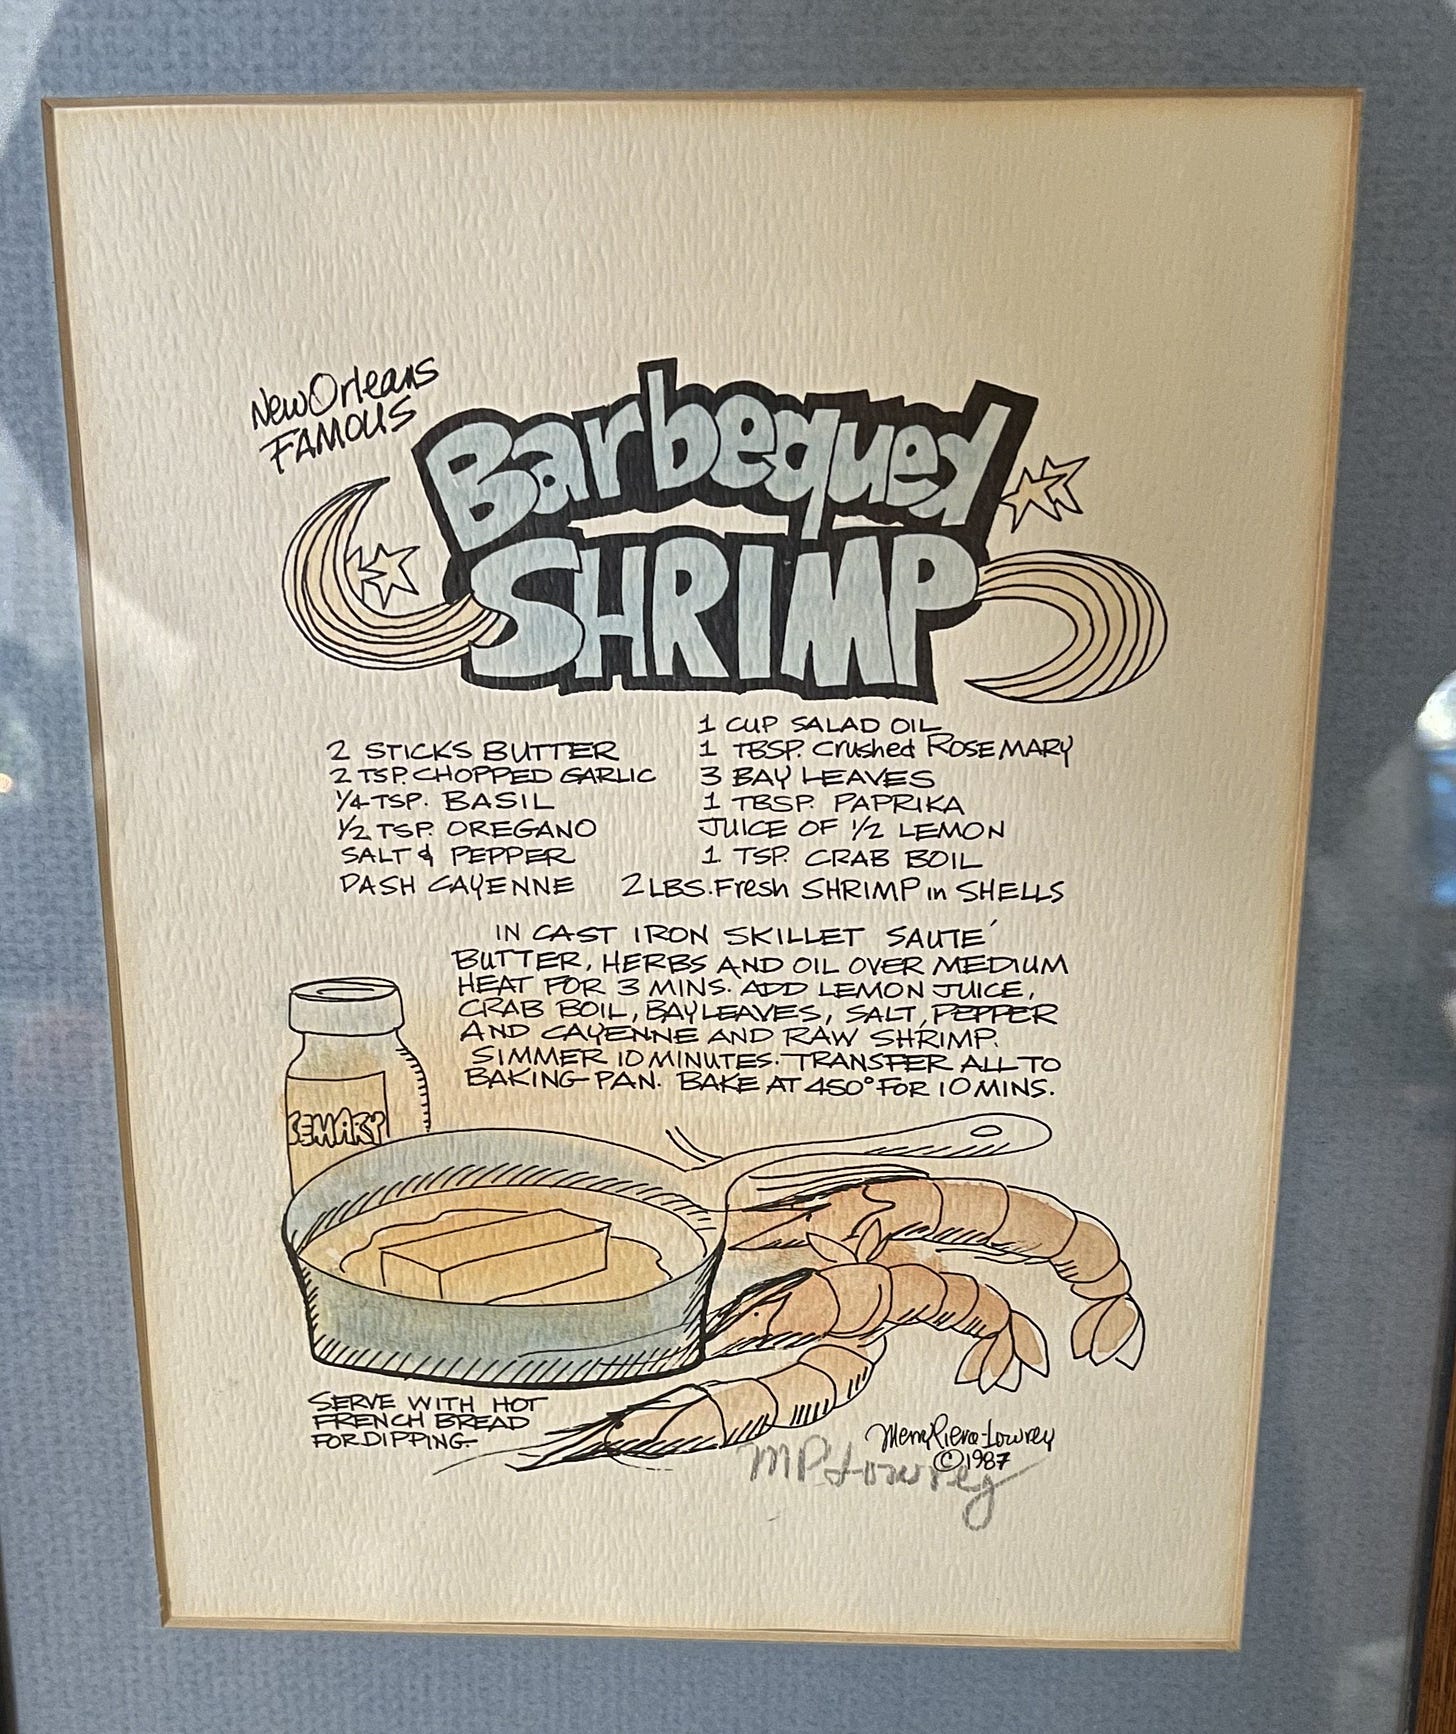 New Orleans
FAMOUS
Barbequed
SHRIMP
2 STICKS BUTTER
2 TSP. CHOPPED GARLIC
1/4 TSP. BASIL
1/2 TSP. OREGANO
SALT & PEPPER
DASH CAYENNE
1 CUP SALAD OIL
1 TBSP. Crushed ROSEMARY
3 BAY LEAVES
1 TBSP. PAPRIKA
JUICE OF 1/2 LEMON
1 TSP. CRAB BOIL
2 LBS. Fresh SHRIMP in SHELLS
IN CAST IRON SKILLET SAUTE´
BUTTER, HERBS AND OIL OVER MEDIUM
HEAT FOR 3 MINS. ADD LEMON JUICE,
CRAB BOIL, BAY LEAVES, SALT, PEPPER
AND CAYENNE AND RAW SHRIMP.
SIMMER 10 MINUTES. TRANSFER ALL TO
BAKING PAN. BAKE AT 450° FOR 10 MINS.
SEMARY
SERVE WITH HOT
FRENCH BREAD
FOR DIPPING.
©1987
MP Lowrey